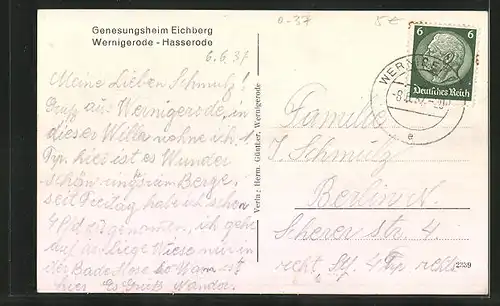 Genesungsheim Eichberg
Wernigerode - Hasserode
o-37
5€
6.6.37
Meine Lieben Schmutz!
Gruß aus Wernigerode, in
dieser Villa wohne ich. 1.
hier ist es Wunder
schön ringsum Berge.
seit Freitag habe ich schon
4 Pfd zugenommen, ich gehe
auf der Liege Wiese nur in
der Bade Hose so Warm ist
hier Es Grüßt
Verlg: Herm. Günther, Wernigerode
6 6
Deutsches Reich
WERNIGERODE
Familie
J. Schmutz
Berlin N.
Scherer str. 4
recht. Stf. 4 Trp rechts
2359